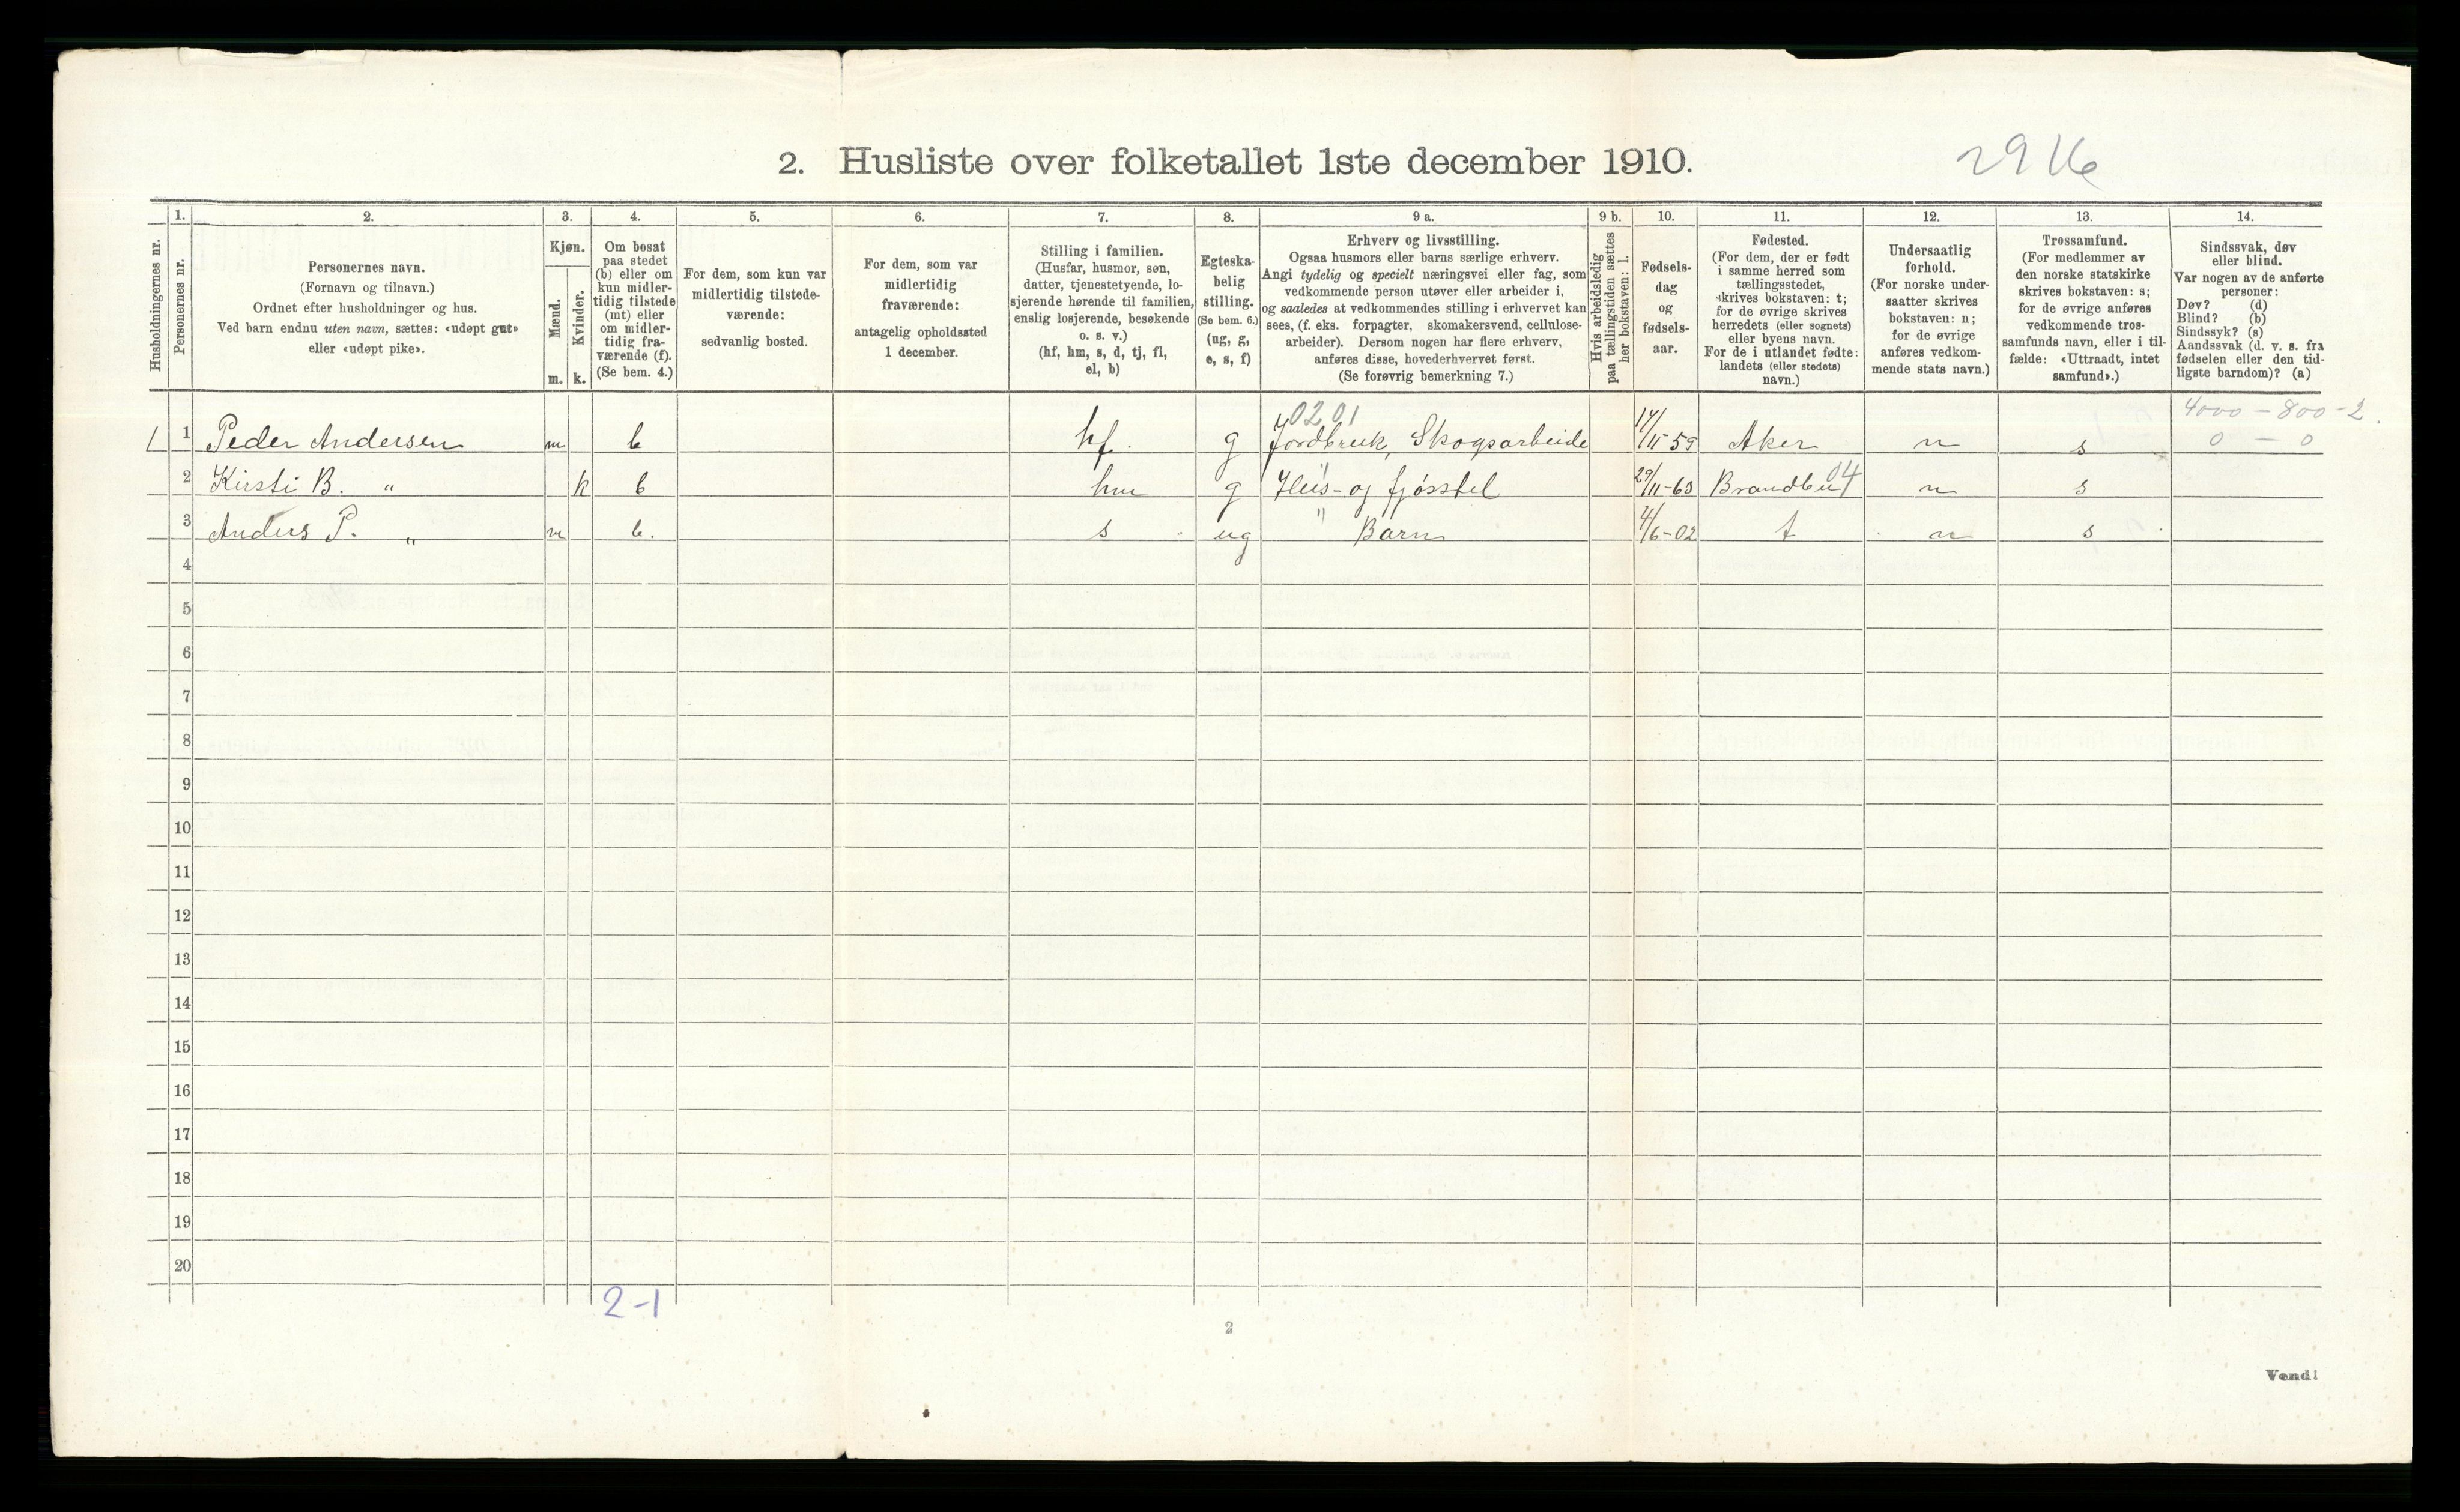 2. Husliste over folketallet 1ste december 1910.
2916
1. 2. 3. 4. 5. 6. 7. 8. 9 a. 9 b. 10. 11. 12. 13. 14.
Husholdningernes nr.
Personernes nr.
Personernes navn.
(Fornavn og tilnavn.)
Ordnet efter husholdninger og hus.
Ved barn endnu uten navn, sættes: «udøpt gut»
eller «udøpt pike».
Kjøn.
Mænd.
Kvinder.
m. k.
Om bosat
paa stedet
(b) eller om
kun midler-
tidig tilstede
(mt) eller
om midler-
tidig fra-
værende (f).
(Se bem. 4.)
For dem, som kun var
midlertidig tilstede-
værende:
sedvanlig bosted.
For dem, som var
midlertidig
fraværende:
antagelig opholdssted
1 december.
Stilling i familien.
(Husfar, husmor, søn,
datter, tjenestetyende, lo-
sjerende hørende til familien,
enslig losjerende, besøkende
o. s. v.)
(hf, hm, s, d, tj, fl,
el, b)
Egteska-
belig
stilling.
(Se bem. 6.)
(ug, g,
e, s, f)
Erhverv og livsstilling.
Ogsaa husmors eller barns særlige erhverv.
Angi tydelig og specielt næringsvei eller fag, som
vedkommende person utøver eller arbeider i,
og saaledes at vedkommendes stilling i erhvervet kan
sees, (f. eks. forpagter, skomakersvend, cellulose-
arbeider). Dersom nogen har flere erhverv,
anføres disse, hovederhvervet først.
(Se forøvrig bemerkning 7.)
Hvis arbeidsledig
paa tællingstiden sættes
her bokstaven: l.
Fødsels-
dag
og
fødsels-
aar.
Fødested.
(For dem, der er født
i samme herred som
tællingsstedet,
skrives bokstaven: t;
for de øvrige skrives
herredets (eller sognets)
eller byens navn.
For de i utlandet fødte:
landets (eller stedets)
navn.)
Undersaatlig
forhold.
(For norske under-
saatter skrives
bokstaven: n;
for de øvrige
anføres vedkom-
mende stats navn.)
Trossamfund.
(For medlemmer av
den norske statskirke
skrives bokstaven: s;
for de øvrige anføres
vedkommende tros-
samfunds navn, eller i til-
fælde: «Uttraadt, intet
samfund».)
Sindssvak, døv
eller blind.
Var nogen av de anførte
personer:
Døv? (d)
Blind? (b)
Sindssyk? (s)
Aandssvak (d. v. s. fra
fødselen eller den tid-
ligste barndom)? (a)
0201 4000 - 800 - 2
1 1 Peder Andersen m b hf. g Jordbruk, Skogsarbeide 14/11-59 Aker n s 0 - 0
2 Kirsti B. " k b hm g Hus- og fjøsstel 29/11-63 Brandbu 04 n s
3 Anders P. " m b. s ug " Barn 4/6-02 t n s
4
5
6
7
8
9
10
11
12
13
14
15
16
17
18
19
20
2-1
2
Vend!